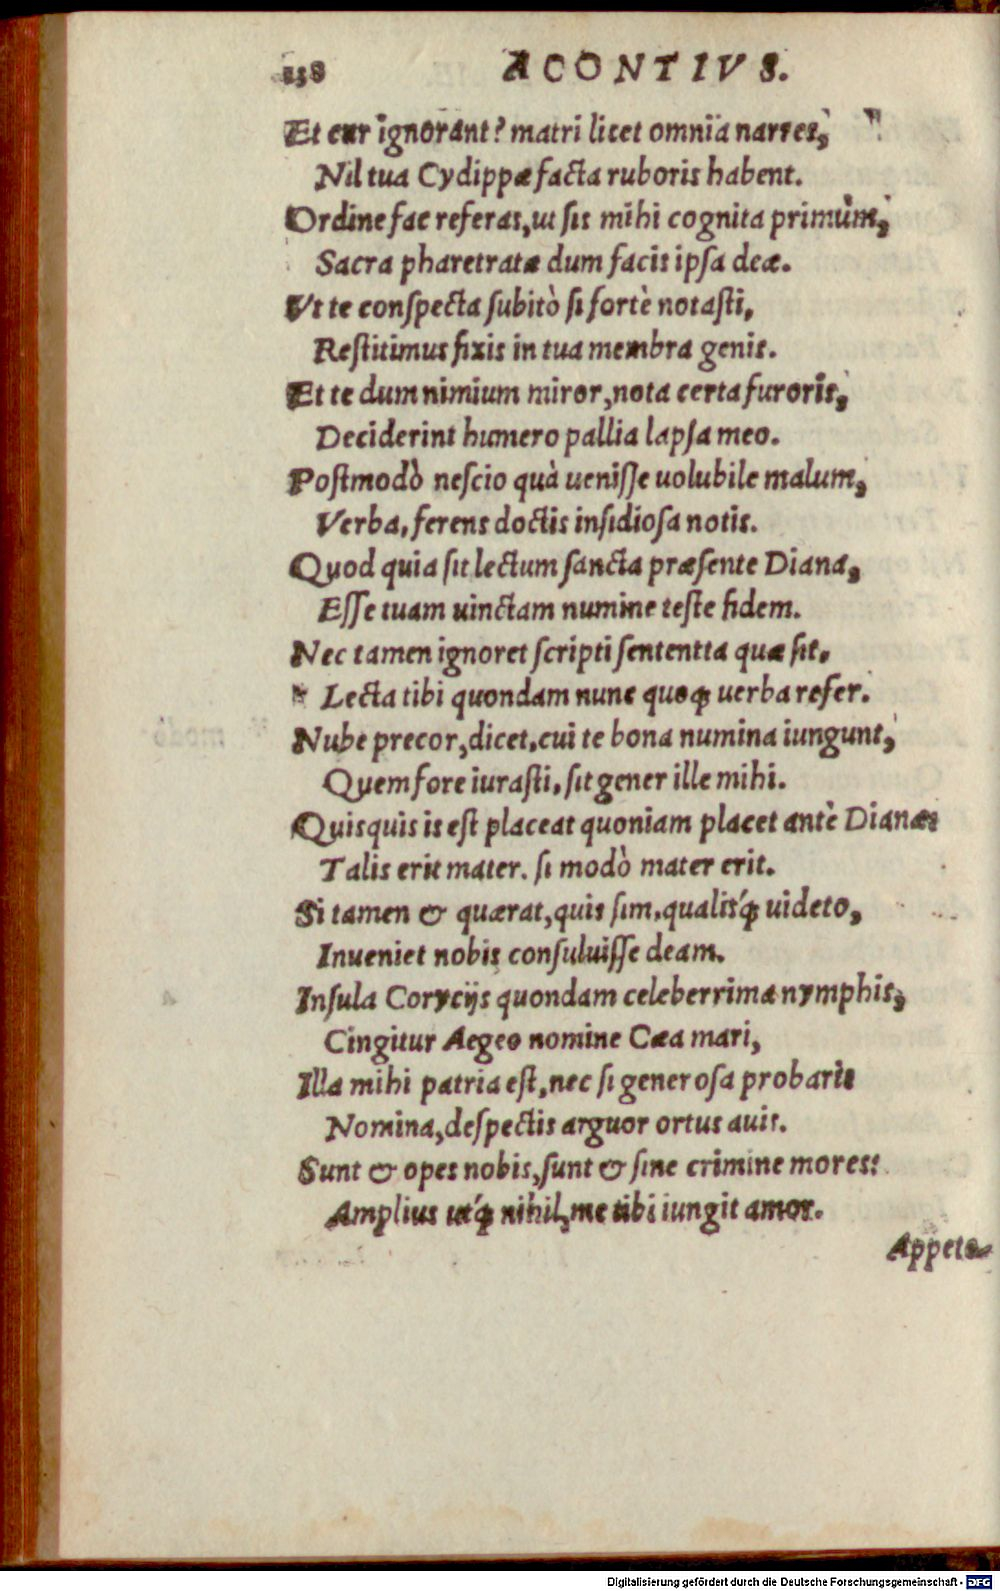 158 ACONTIVS.
Et cur ignorant? matri licet omnia narres,
Nil tua Cydippæ facta ruboris habent.
Ordine fac referas, ut sis mihi cognita primùm,
Sacra pharetratæ dum facis ipsa deæ.
Vt te conspecta subitò si fortè notasti,
Restitimus fixis in tua membra genis.
Et te dum nimium miror, nota certa furoris,
Deciderint humero pallia lapsa meo.
Postmodò nescio quà uenisse uolubile malum,
Verba, ferens doctis insidiosa notis.
Quod quia sit lectum sancta præsente Diana,
Esse tuam uinctam numine teste fidem.
Nec tamen ignoret scripti sententta quæ sit,
Lecta tibi quondam nunc quoq́; uerba refer.
Nube precor, dicet, cui te bona numina iungunt,
Quem fore iurasti, sit gener ille mihi.
Quisquis is est placeat quoniam placet antè Dianæ:
Talis erit mater. si modò mater erit.
Si tamen & quærat, quis sim, qualisq́; uideto,
Inueniet nobis consuluisse deam.
Insula Corycijs quondam celeberrima nymphis,
Cingitur Aegeo nomine Cæa mari,
Illa mihi patria est, nec si generosa probaris
Nomina, despectis arguor ortus auis.
Sunt & opes nobis, sunt & sine crimine mores:
Amplius utq́; nihil, me tibi iungit amor.
Appete-
Digitalisierung gefördert durch die Deutsche Forschungsgemeinschaft - DFG